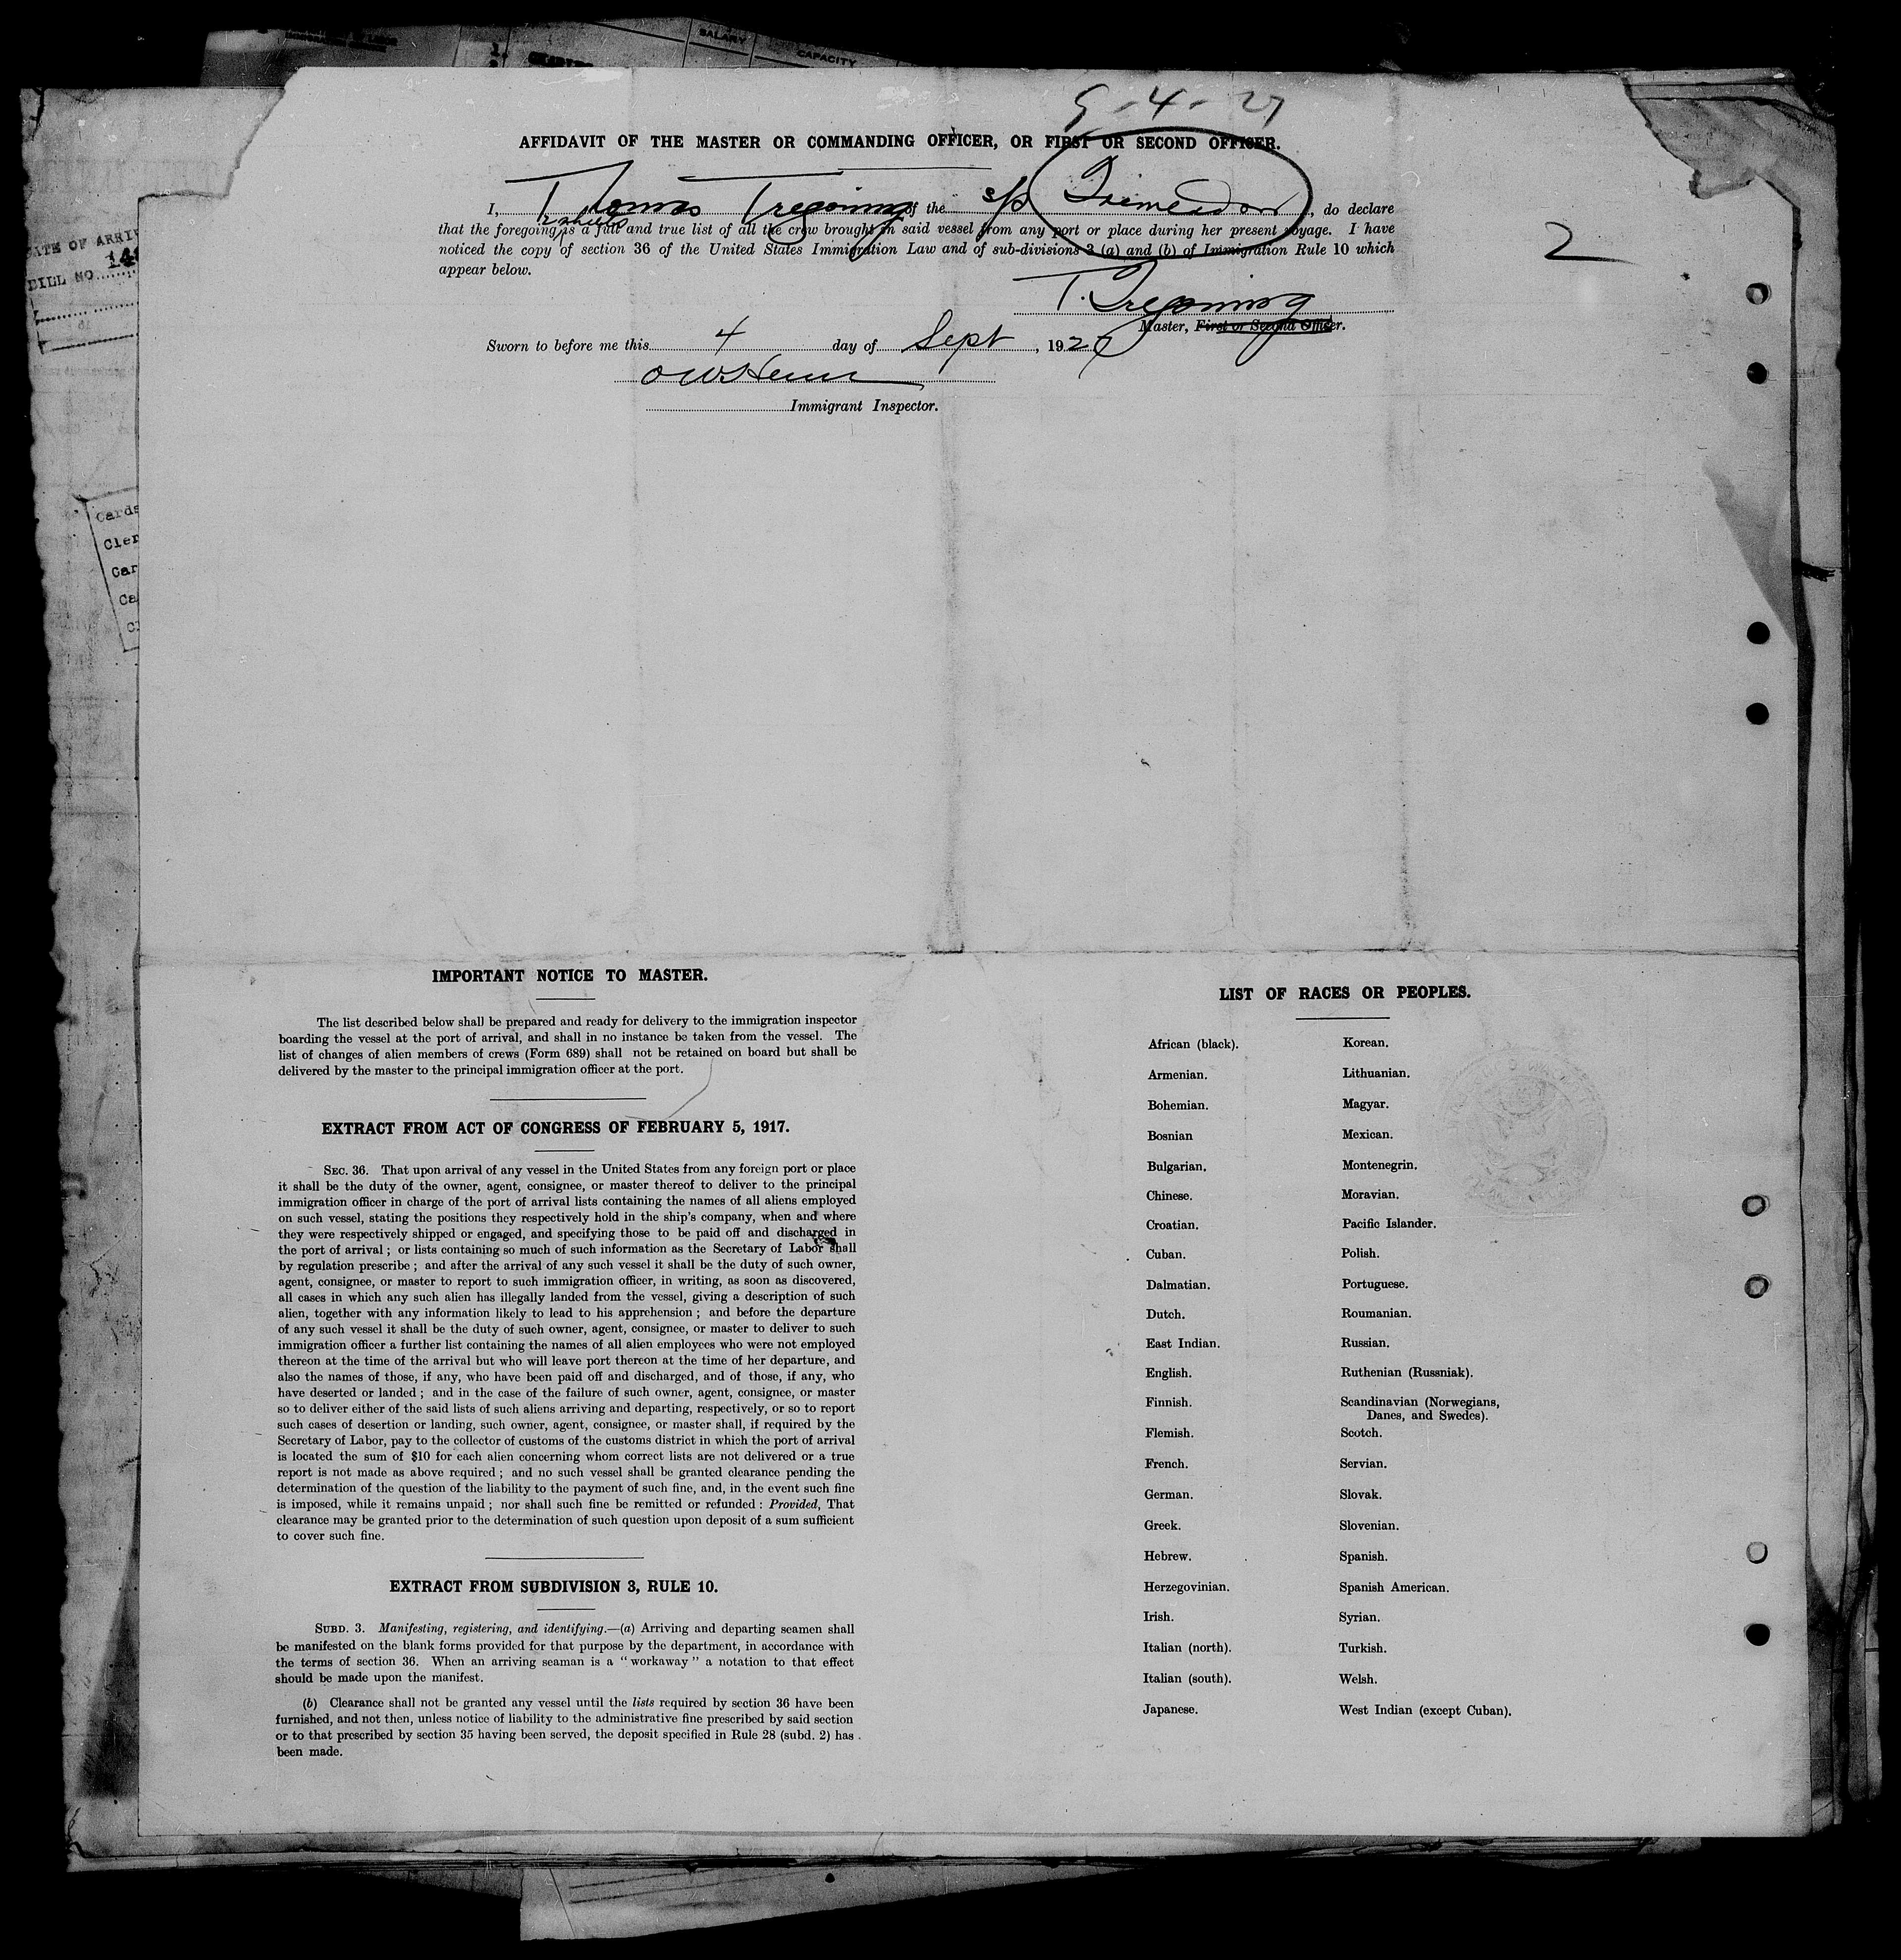 SALARY
CAPACITY
9-4-27
AFFIDAVIT OF THE MASTER OR COMMANDING OFFICER, OR FIRST OR SECOND OFFICER.
I, Thomas Tregoning of the s/s , do declare
2 sheets
that the foregoing is a full and true list of all the crew brought in said vessel from any port or place during her present voyage. I have
noticed the copy of section 36 of the United States Immigration Law and of sub-divisions 3 (a) and (b) of Immigration Rule 10 which
appear below.
2
T. Tregoning
Master, First or Second Officer.
Sworn to before me this 4 day of Sept, 1927
Immigrant Inspector.
DATE OF ARRIV
BILL NO.
Cards
Cler
Car
Ca
IMPORTANT NOTICE TO MASTER.
The list described below shall be prepared and ready for delivery to the immigration inspector
boarding the vessel at the port of arrival, and shall in no instance be taken from the vessel. The
list of changes of alien members of crews (Form 689) shall not be retained on board but shall be
delivered by the master to the principal immigration officer at the port.
EXTRACT FROM ACT OF CONGRESS OF FEBRUARY 5, 1917.
SEC. 36. That upon arrival of any vessel in the United States from any foreign port or place
it shall be the duty of the owner, agent, consignee, or master thereof to deliver to the principal
immigration officer in charge of the port of arrival lists containing the names of all aliens employed
on such vessel, stating the positions they respectively hold in the ship's company, when and where
they were respectively shipped or engaged, and specifying those to be paid off and discharged in
the port of arrival; or lists containing so much of such information as the Secretary of Labor shall
by regulation prescribe; and after the arrival of any such vessel it shall be the duty of such owner,
agent, consignee, or master to report to such immigration officer, in writing, as soon as discovered,
all cases in which any such alien has illegally landed from the vessel, giving a description of such
alien, together with any information likely to lead to his apprehension; and before the departure
of any such vessel it shall be the duty of such owner, agent, consignee, or master to deliver to such
immigration officer a further list containing the names of all alien employees who were not employed
thereon at the time of the arrival but who will leave port thereon at the time of her departure, and
also the names of those, if any, who have been paid off and discharged, and of those, if any, who
have deserted or landed; and in the case of the failure of such owner, agent, consignee, or master
so to deliver either of the said lists of such aliens arriving and departing, respectively, or so to report
such cases of desertion or landing, such owner, agent, consignee, or master shall, if required by the
Secretary of Labor, pay to the collector of customs of the customs district in which the port of arrival
is located the sum of $10 for each alien concerning whom correct lists are not delivered or a true
report is not made as above required; and no such vessel shall be granted clearance pending the
determination of the question of the liability to the payment of such fine, and, in the event such fine
is imposed, while it remains unpaid; nor shall such fine be remitted or refunded: Provided, That
clearance may be granted prior to the determination of such question upon deposit of a sum sufficient
to cover such fine.
EXTRACT FROM SUBDIVISION 3, RULE 10.
SUBD. 3. Manifesting, registering, and identifying.—(a) Arriving and departing seamen shall
be manifested on the blank forms provided for that purpose by the department, in accordance with
the terms of section 36. When an arriving seaman is a "workaway" a notation to that effect
should be made upon the manifest.
(b) Clearance shall not be granted any vessel until the lists required by section 36 have been
furnished, and not then, unless notice of liability to the administrative fine prescribed by said section
or to that prescribed by section 35 having been served, the deposit specified in Rule 28 (subd. 2) has
been made.
LIST OF RACES OR PEOPLES.
African (black).
Armenian.
Bohemian.
Bosnian
Bulgarian.
Chinese.
Croatian.
Cuban.
Dalmatian.
Dutch.
East Indian.
English.
Finnish.
Flemish.
French.
German.
Greek.
Hebrew.
Herzegovinian.
Irish.
Italian (north).
Italian (south).
Japanese.
Korean.
Lithuanian.
Magyar.
Mexican.
Montenegrin.
Moravian.
Pacific Islander.
Polish.
Portuguese.
Roumanian.
Russian.
Ruthenian (Russniak).
Scandinavian (Norwegians,
Danes, and Swedes).
Scotch.
Servian.
Slovak.
Slovenian.
Spanish.
Spanish American.
Syrian.
Turkish.
Welsh.
West Indian (except Cuban).